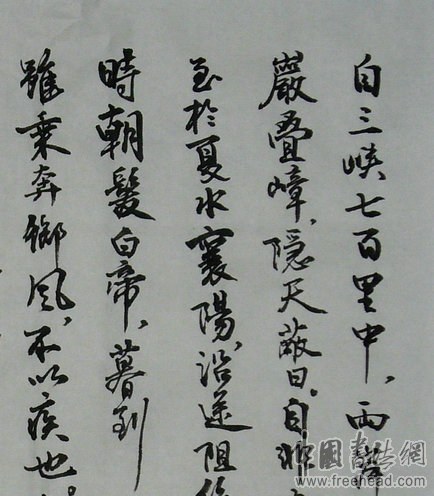 自三峽七百里中，兩
巖疊嶂，隱天蔽日。自非
至於夏水襄陽，沿遡阻
時朝髮白帝，暮到
雖乘奔御風，不以疾也。
中國書法網
www.freehead.com